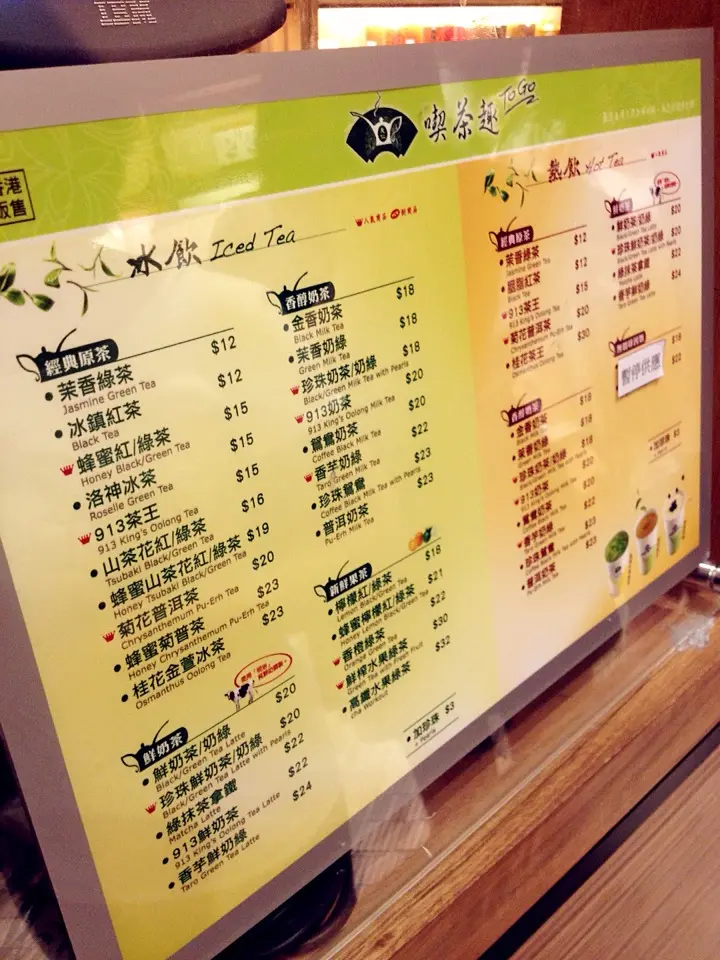 IBM
喫茶趣 ToGo
香港
販售
冰飲 Iced Tea
人氣商品 新商品
經典原茶
茉香綠茶 $12
Jasmine Green Tea
冰鎮紅茶 $12
Black Tea
蜂蜜紅/綠茶 $15
Honey Black/Green Tea
洛神冰茶 $15
Roselle Green Tea
913茶王 $15
913 King's Oolong Tea
山茶花紅/綠茶 $16
Tsubaki Black/Green Tea
蜂蜜山茶花紅/綠茶 $19
Honey Tsubaki Black/Green Tea
菊花普洱茶 $20
Chrysanthemum Pu-Erh Tea
蜂蜜菊普茶 $23
Honey Chrysanthemum Pu-Erh Tea
桂花金萱冰茶 $23
Osmanthus Oolong Tea
鮮奶茶
鮮奶茶/奶綠 $20
Black/Green Tea Latte
珍珠鮮奶茶/奶綠 $20
Black/Green Tea Latte with Pearls
綠抹茶拿鐵 $22
Matcha Latte
913鮮奶茶 $22
913 King's Oolong Tea Latte
香芋鮮奶綠 $24
Taro Green Tea Latte
香醇奶茶
金香奶茶 $18
Black Milk Tea
茉香奶綠 $18
Green Milk Tea
珍珠奶茶/奶綠 $18
Black/Green Milk Tea with Pearls
913奶茶 $20
913 King's Oolong Milk Tea
鴛鴦奶茶 $20
Coffee Black Milk Tea
香芋奶綠 $22
Taro Green Milk Tea
珍珠鴛鴦 $23
Coffee Black Milk Tea with Pearls
普洱奶茶 $23
Pu-Erh Milk Tea
新鮮果茶
檸檬紅/綠茶 $18
Lemon Black/Green Tea
蜂蜜檸檬紅/綠茶 $21
Honey Lemon Black/Green Tea
香橙綠茶 $22
Orange Green Tea
鮮榨水果綠茶 $30
Green Tea with Fresh Fruit
高纖水果綠茶 $32
加珍珠 $3
+ Pearls
熱飲 Hot Tea
經典原茶
茉香綠茶 $12
Jasmine Green Tea
胭脂紅茶 $12
Black Tea
913茶王 $15
913 King's Oolong Tea
菊花普洱茶 $20
Chrysanthemum Pu-Erh Tea
桂花茶王 $30
Osmanthus Oolong Tea
香醇奶茶
金香奶茶 $18
茉香奶綠 $18
珍珠奶茶/奶綠 $18
913奶茶 $20
鴛鴦奶茶 $20
香芋奶綠 $22
珍珠鴛鴦 $23
普洱奶茶 $23
鮮奶茶
鮮奶茶/奶綠 $20
Black/Green Tea Latte
珍珠鮮奶茶/奶綠 $20
綠抹茶拿鐵 $22
Matcha Latte
香芋鮮奶綠 $24
Taro Green Tea Latte
暫停供應
加珍珠 $3